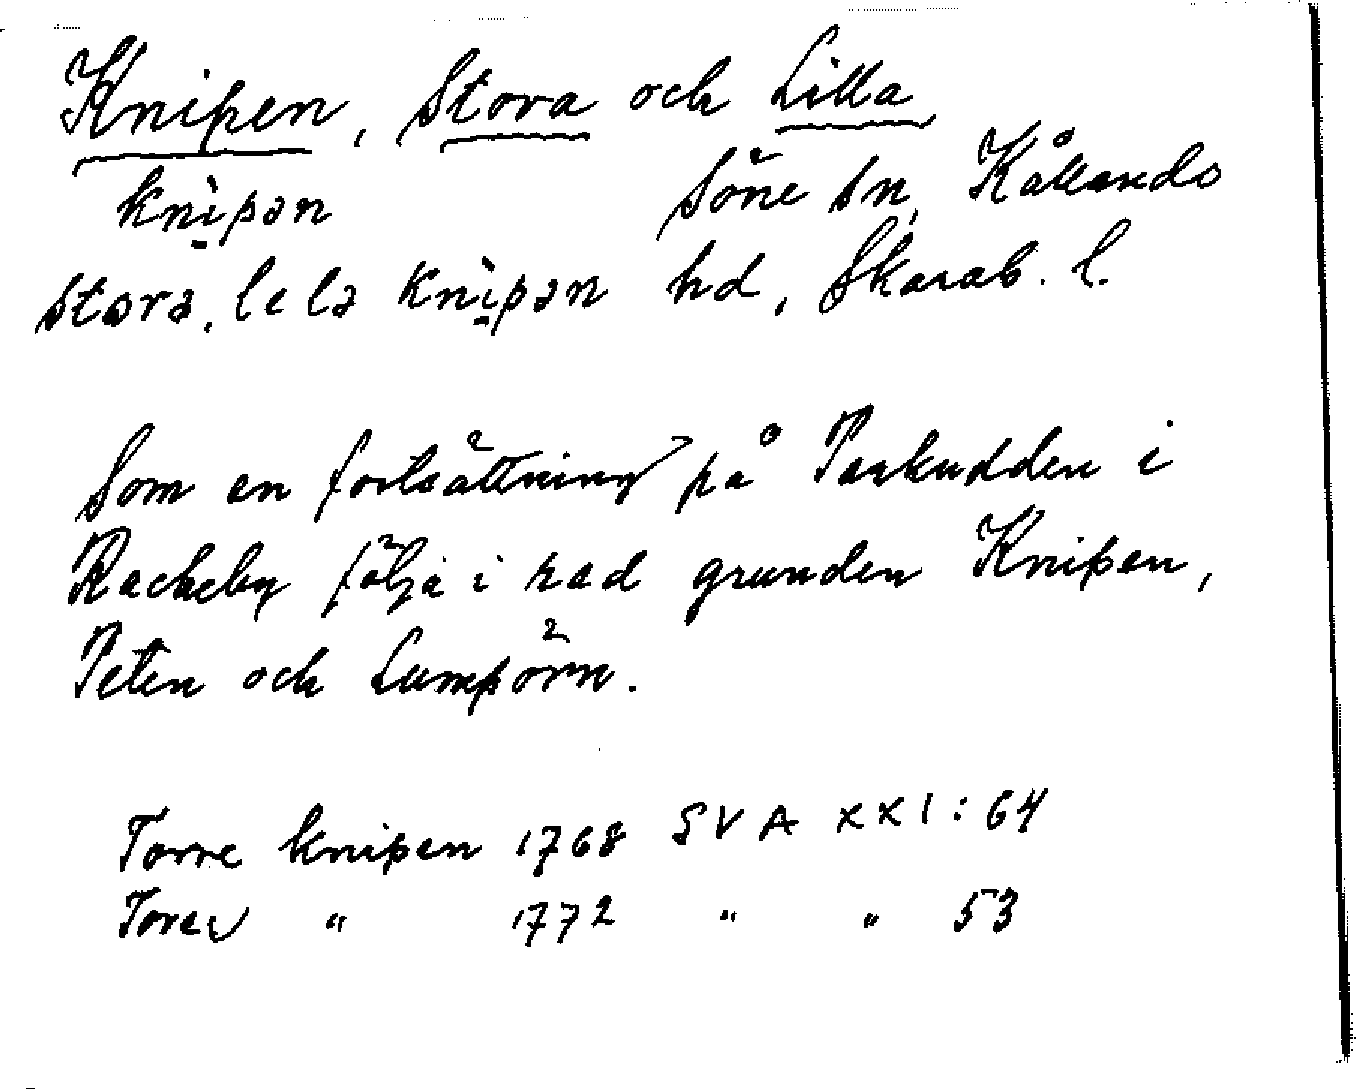 Knipen, Stora och Lilla
knipən Söne sn, Kållands
stora, lelə knipən hd, Skarab. l.
Som en fortsättning på Parkudden i
Rackeby följa i rad grunden Knipen,
Peten och Lumpörn.
Torre knipen 1768 SVA XXI:64
Torev " 1772 " " 53